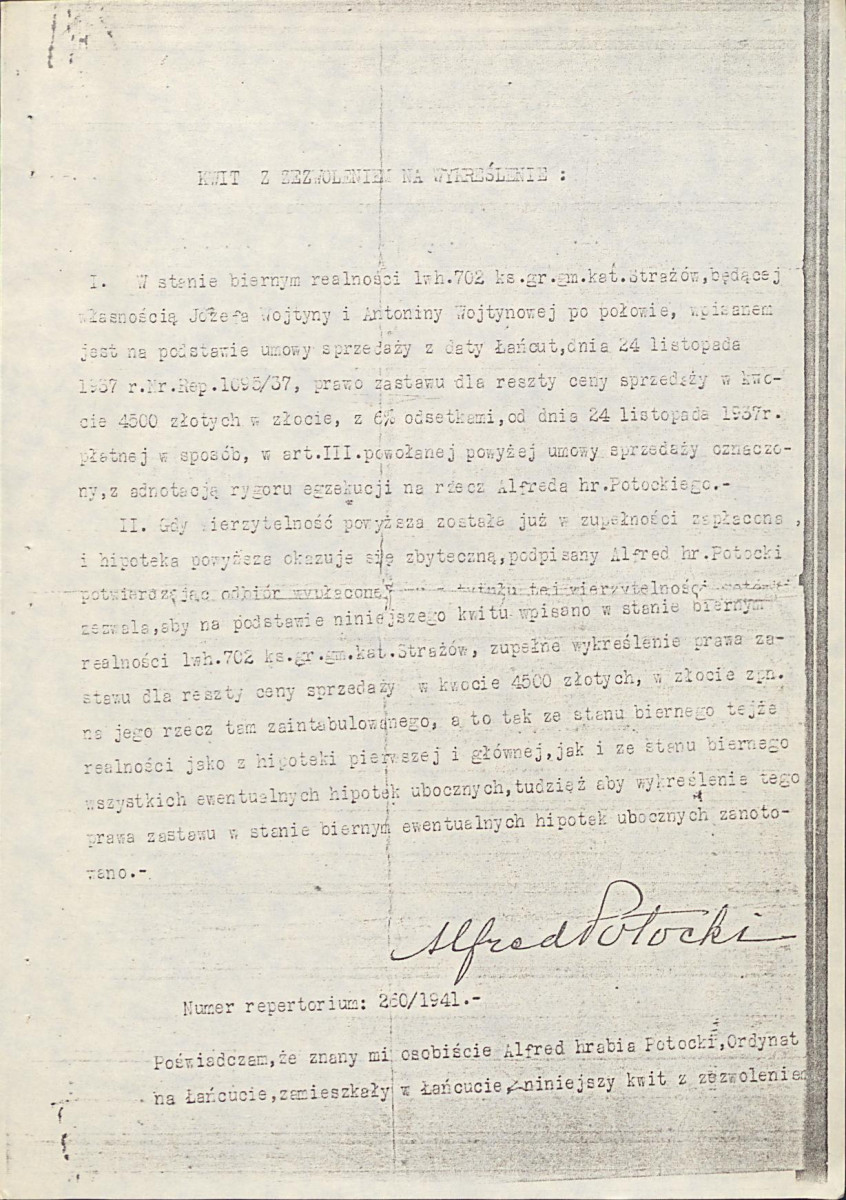 KWIT Z ZEZWOLENIEM NA WYKREŚLENIE :
I. W stanie biernym realności lwh.702 ks.gr.gm.kat.Strażów,będącej
własnością Józefa Wojtyny i Antoniny Wojtynowej po połowie, wpisanem
jest na podstawie umowy sprzedaży z daty Łańcut,dnia 24 listopada
1937 r.Nr.Rep.1095/37, prawo zastawu dla reszty ceny sprzedaży w kwo-
cie 4500 złotych w złocie, z 6% odsetkami,od dnia 24 listopada 1937r.
płatnej w sposób, w art.III.powołanej powyżej umowy sprzedaży oznaczo-
ny,z adnotacją rygoru egzekucji na rzecz Alfreda hr.Potockiego.-
II. Gdy wierzytelność powyższa została już w zupełności zapłacona ,
i hipoteka powyższa okazuje się zbyteczną,podpisany Alfred hr.Potocki
potwierdzając odbiór wypłaconej mu z tytułu tej wierzytelności gotówki
zezwala,aby na podstawie niniejszego kwitu wpisano w stanie biernym
realności lwh.702 ks.gr.gm.kat.Strażów, zupełne wykreślenie prawa za-
stawu dla reszty ceny sprzedaży w kwocie 4500 złotych, w złocie zpn.
na jego rzecz tam zaintabulowanego, a to tak ze stanu biernego tejże
realności jako z hipoteki pierwszej i głównej,jak i ze stanu biernego
wszystkich ewentualnych hipotek ubocznych,tudzięż aby wykreślenie tego
prawa zastawu w stanie biernym ewentualnych hipotek ubocznych zanoto-
wano.-
Alfred Potocki
Numer repertorium: 260/1941.-
Poświadczam,że znany mi osobiście Alfred hrabia Potocki,Ordynat
na Łańcucie,zamieszkały w Łańcucie, niniejszy kwit z zezwoleniem